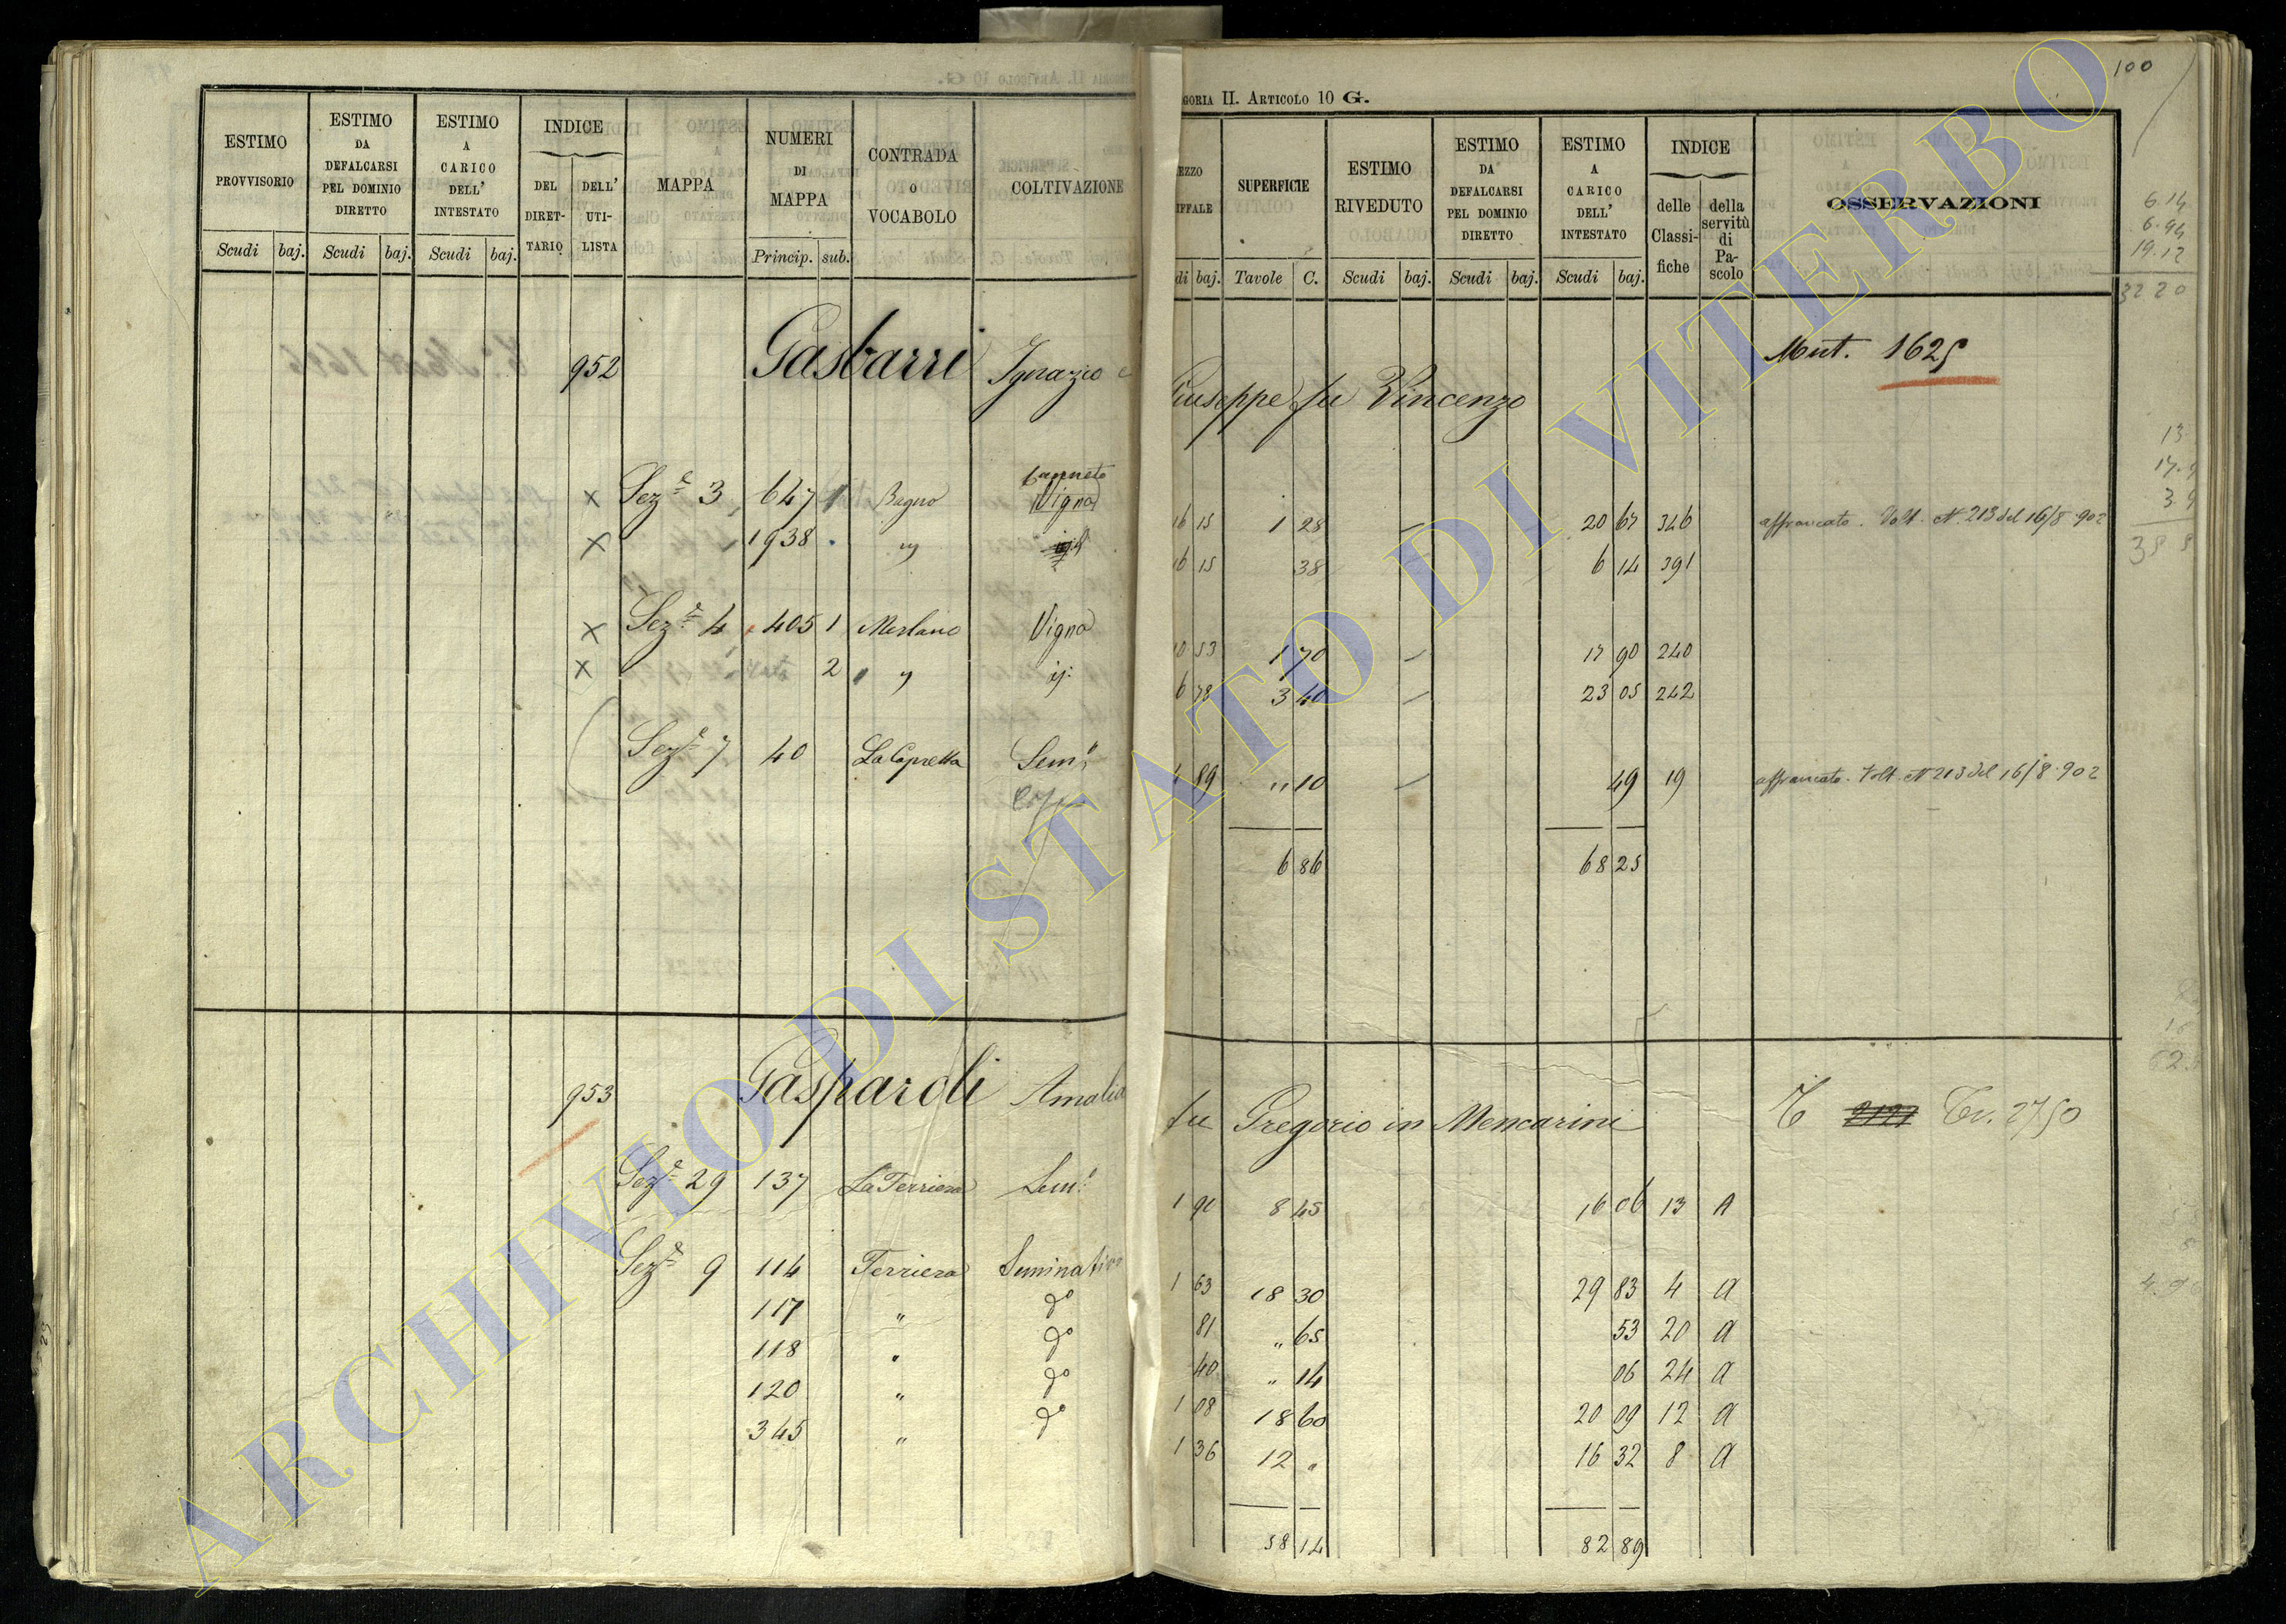 100
GORIA II. ARTICOLO 10 G.
ESTIMO PROVVISORIO Scudi baj.
ESTIMO DA DEFALCARSI PEL DOMINIO DIRETTO Scudi baj.
ESTIMO A CARICO DELL' INTESTATO Scudi baj.
INDICE DEL DIRET- TARIO DELL' UTI- LISTA
MAPPA
NUMERI DI MAPPA Princip. sub.
CONTRADA o VOCABOLO
COLTIVAZIONE
EZZO IFFALE di baj.
SUPERFICIE Tavole C.
ESTIMO RIVEDUTO Scudi baj.
ESTIMO DA DEFALCARSI PEL DOMINIO DIRETTO Scudi baj.
ESTIMO A CARICO DELL' INTESTATO Scudi baj.
INDICE delle Classi- fiche della servitù di Pa- scolo
OSSERVAZIONI
6.14
6.94
19.12
32 20
952 Gasbarri Ignazio e Giuseppe fu Vincenzo Mut. 1625
Canneto
x Sez.e 3 647 Bagno Vigna 16 15 1 28 20 67 326 affrancato. Volt. N. 213 del 16/8 902
x 1938 " 16 15 38 6 14 391
x Sez.e 4 405 1 Merlano Vigna 10 53 1 70 17 90 240
x 2 " id. 6 78 3 40 23 05 242
Sez.e 7 40 La Capretta Sem.o 4 89 " 10 49 19 affrancato. Volt. N 213 del 16/8 902
6 86 68 25
953 Gasparoli Amalia fu Gregorio in Mencarini T 2121 Tr. 2750
Sez.e 29 137 La Ferriera Sem.o 1 90 8 45 16 06 13 A
Sez.e 9 114 Ferriera Seminativo 1 63 18 30 29 83 4 A
117 " do 81 " 65 53 20 A
118 " do 40 " 14 06 24 A
120 " do 1 08 18 60 20 09 12 A
345 " do 1 36 12 " 16 32 8 A
58 14 82 89
ARCHIVIO DI STATO DI VITERBO